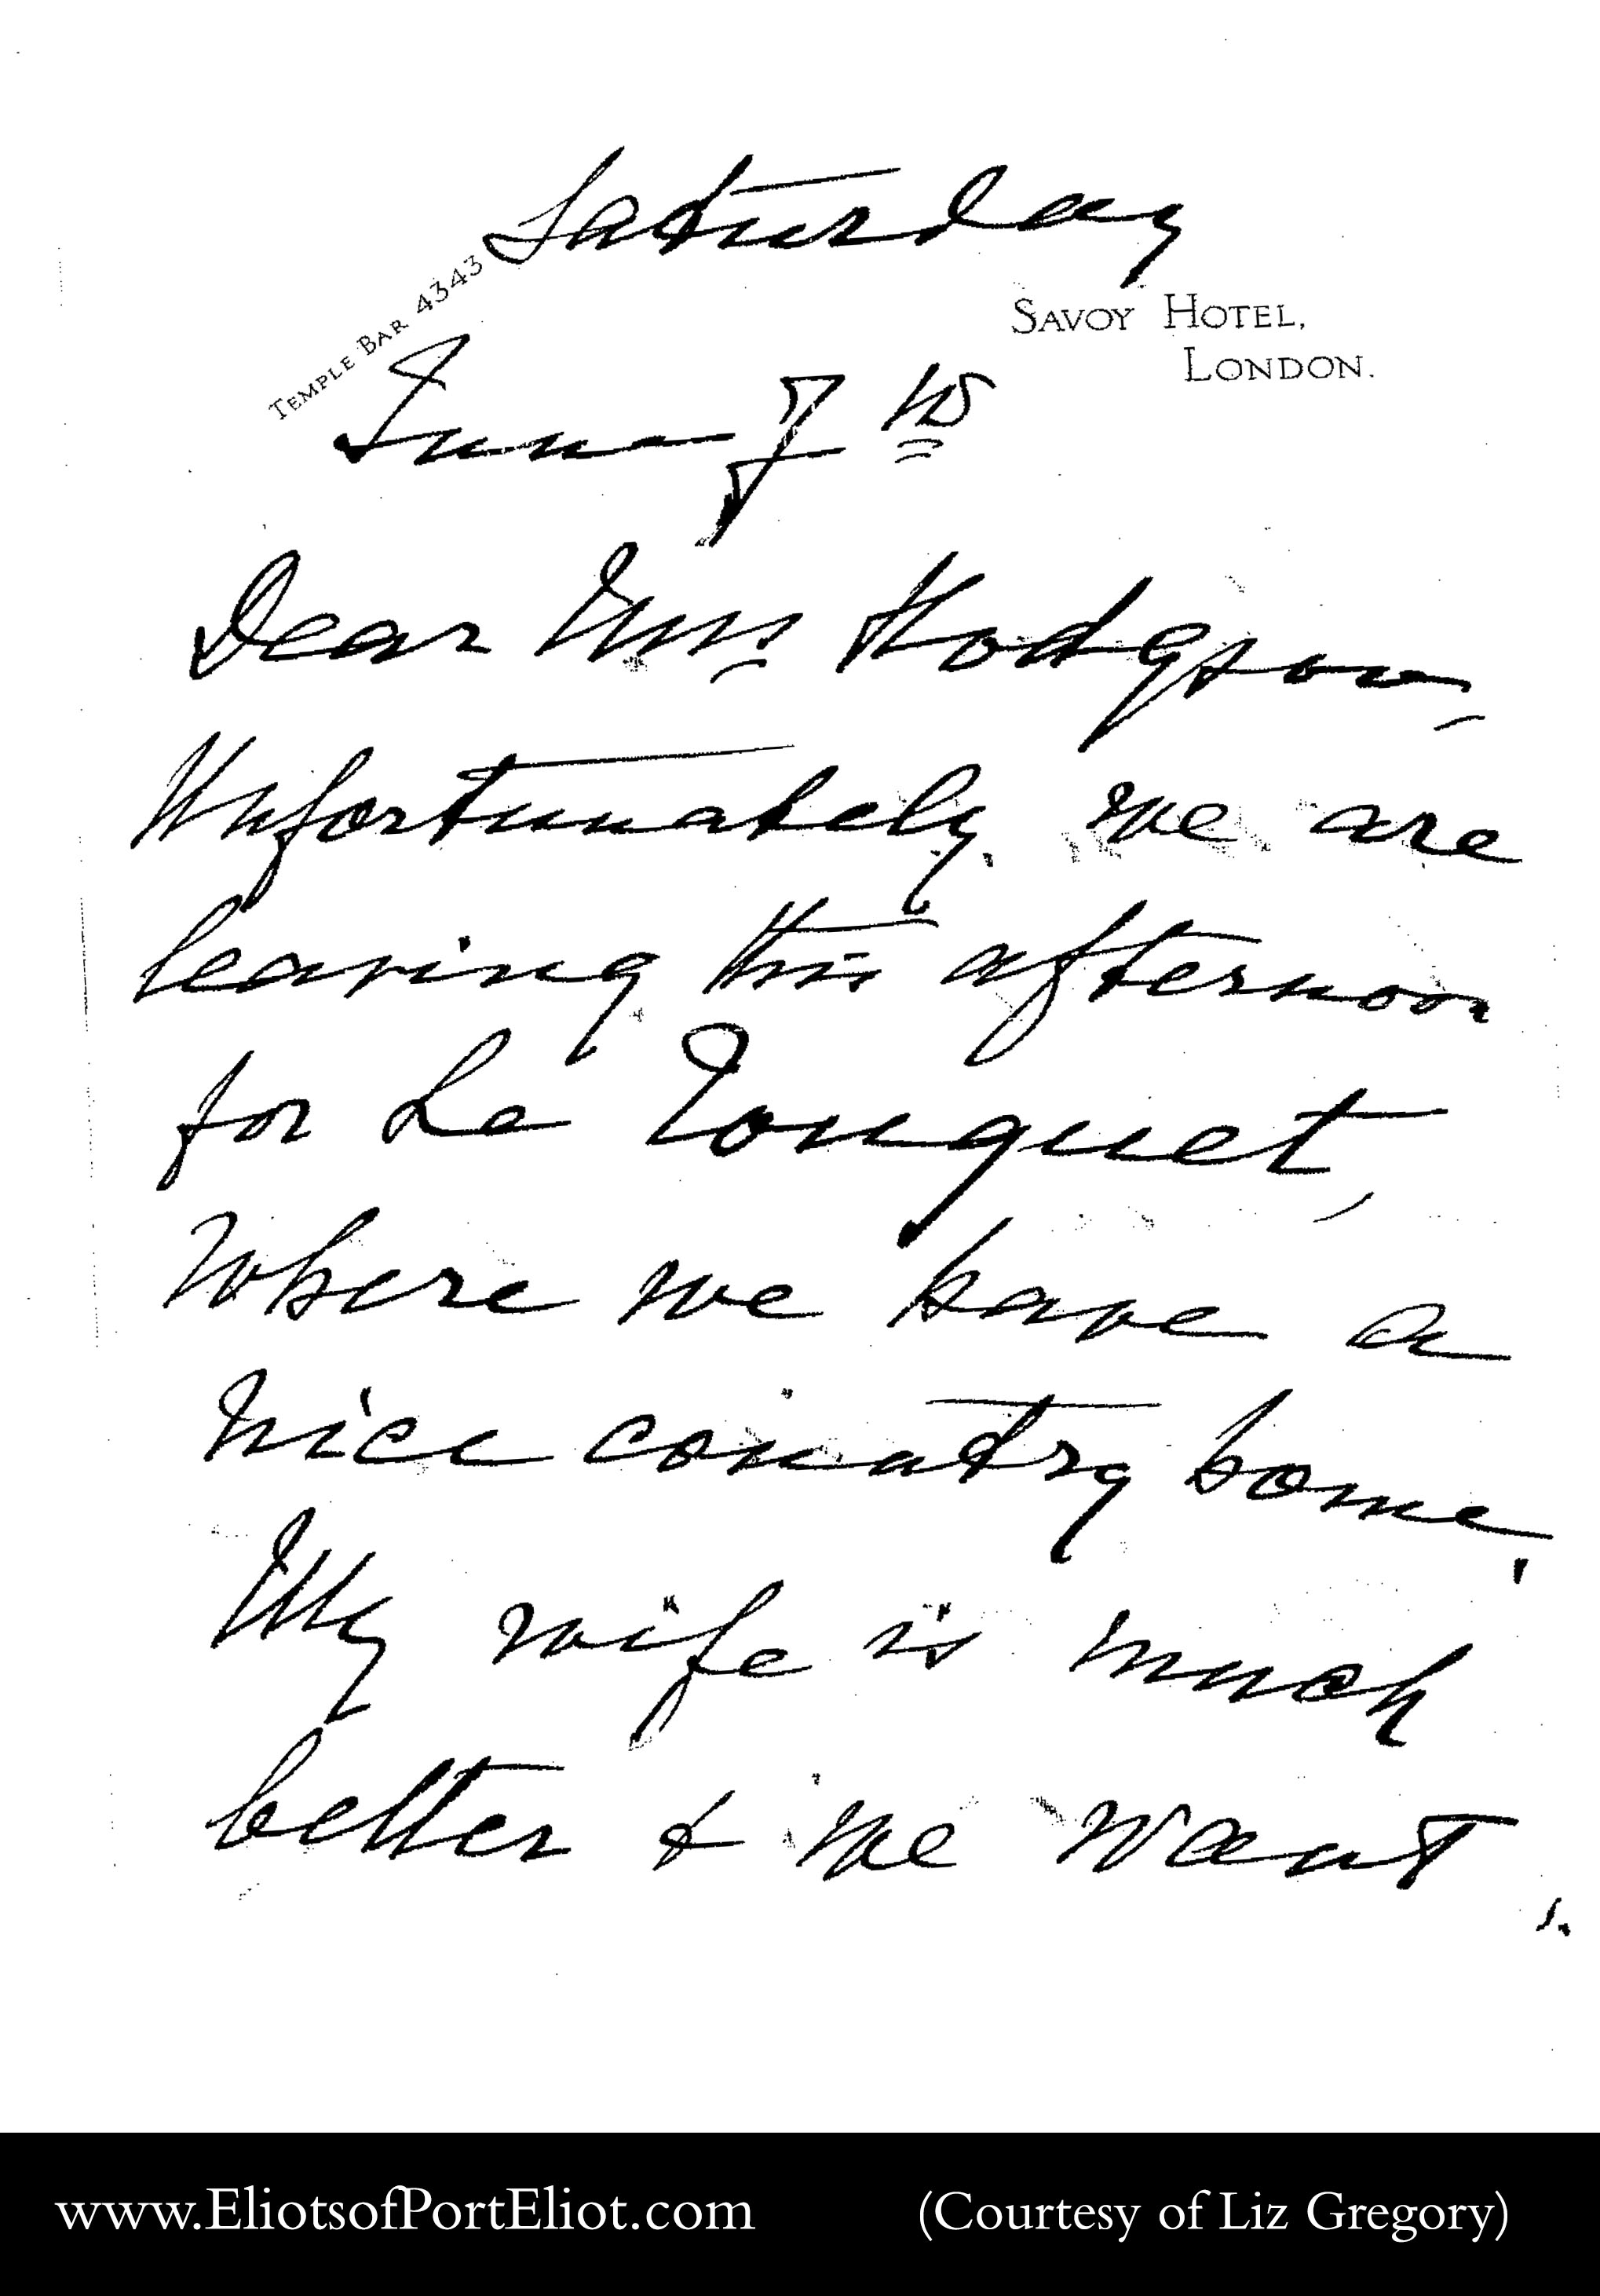 Saturday
TEMPLE BAR 4343
SAVOY HOTEL,
LONDON.
June 7th
Dear Mrs Hodgson,
Unfortunately we are
leaving this afternoon
for Le Touquet,
where we have a
nice country home.
My wife is much
better & we want
www.EliotsofPortEliot.com (Courtesy of Liz Gregory)